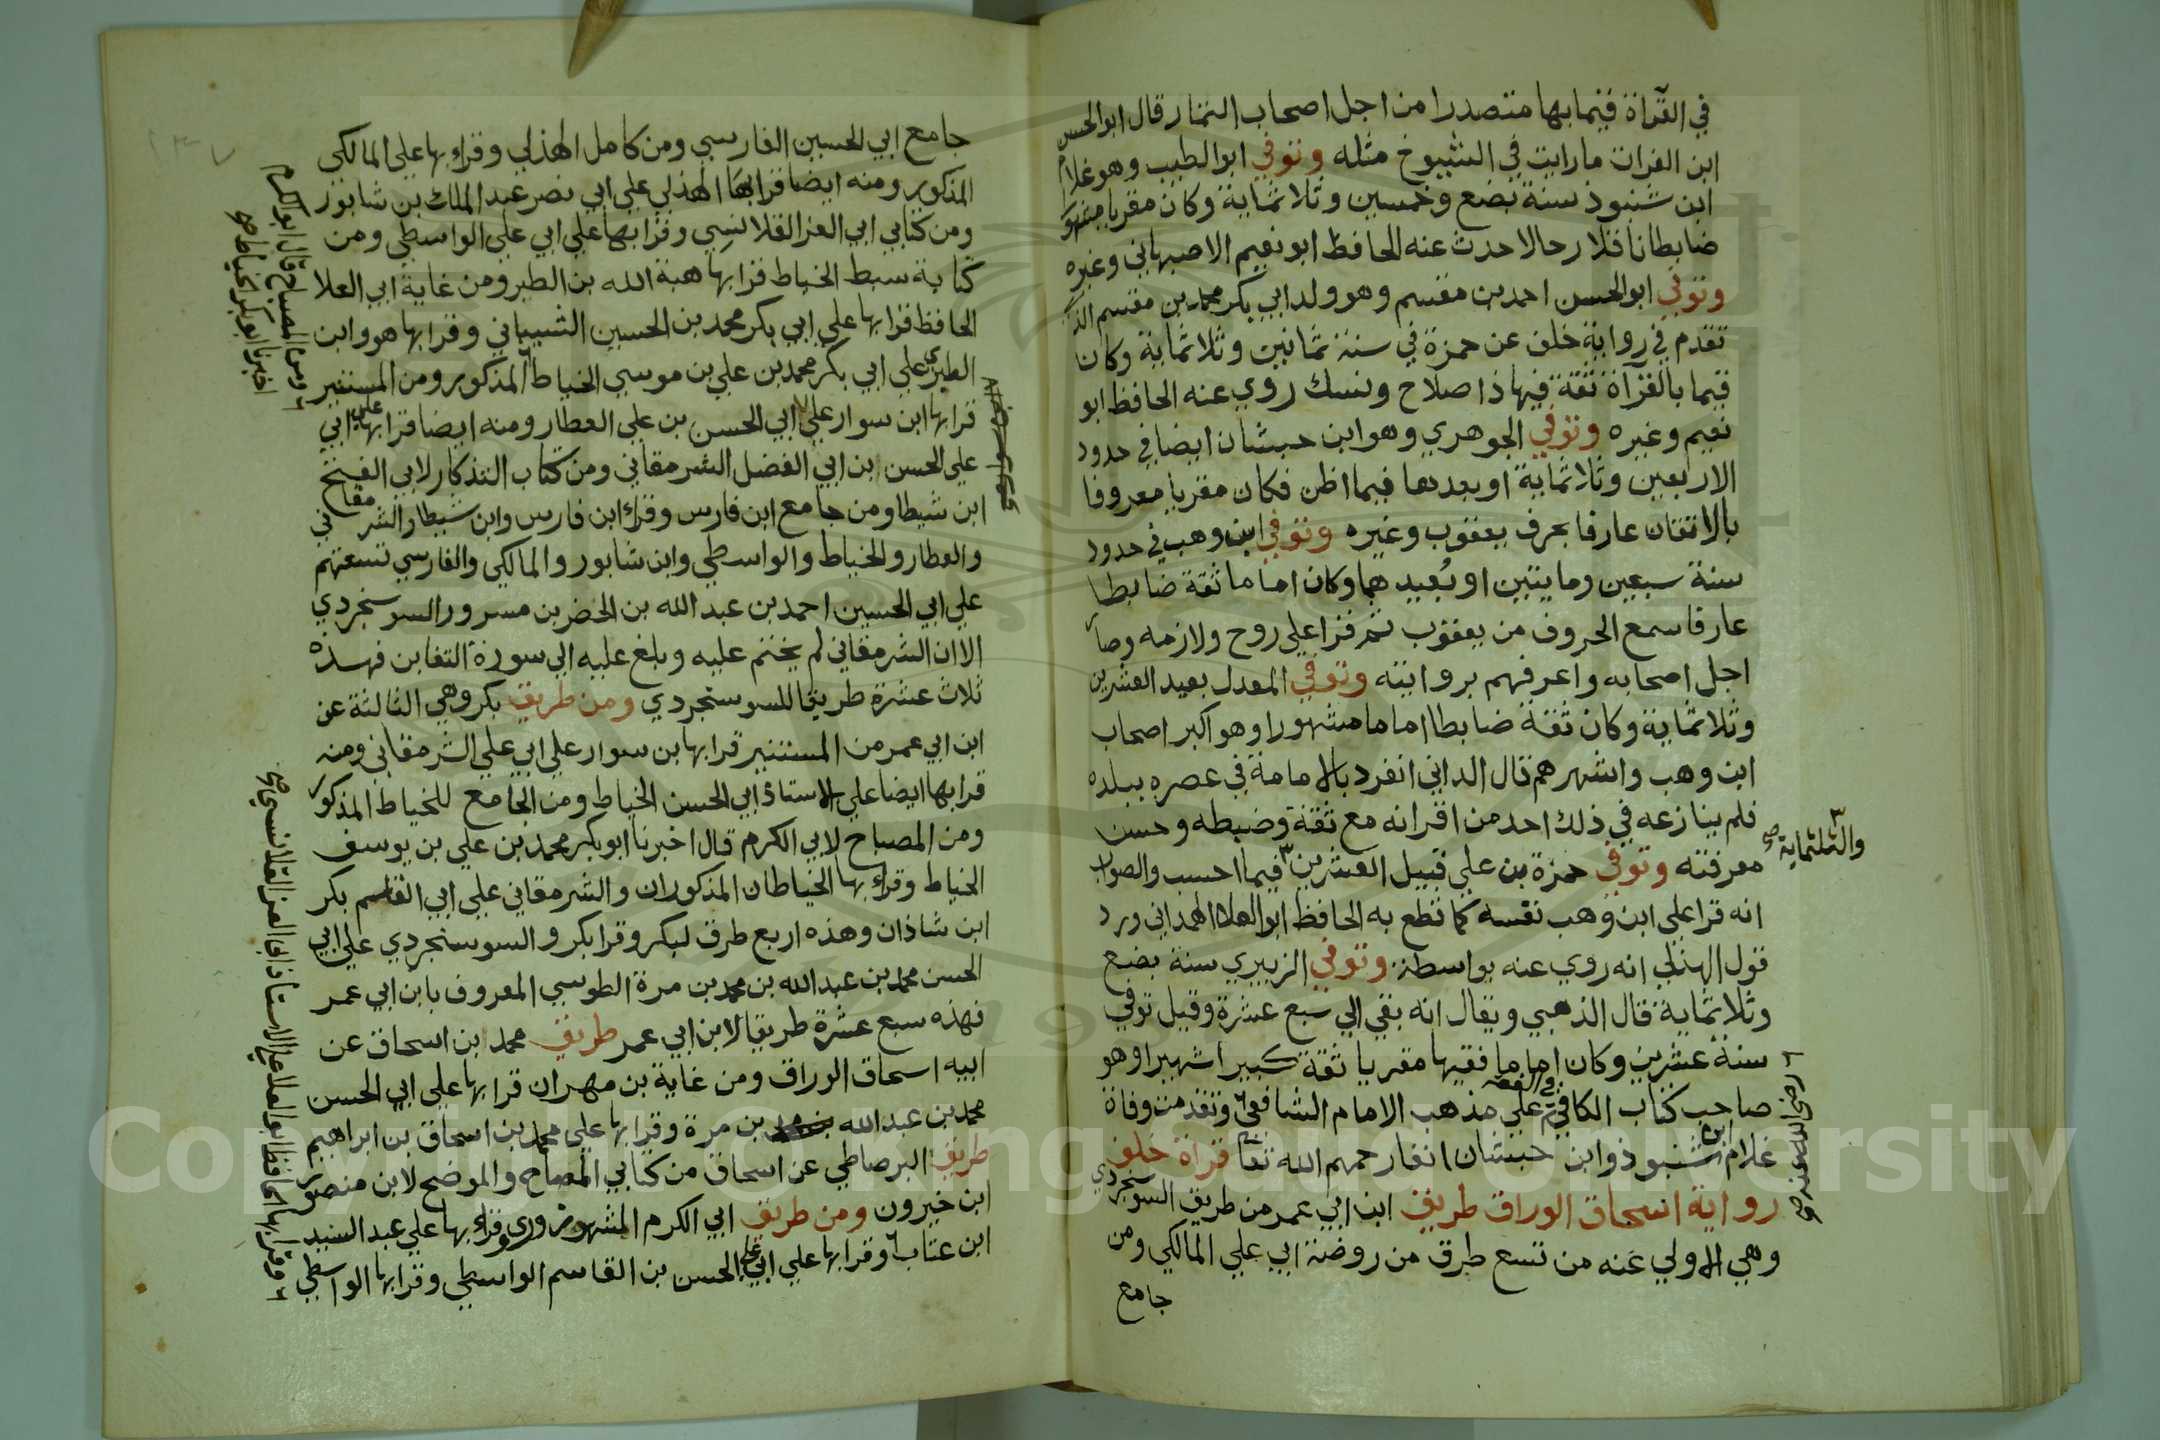 في القرآة فيما بها متصدرا من اجل اصحاب التمار قال ابو الحسن
ابن الفرات ما رايت في الشيوخ مثله وتوفي ابو الطيب وهو غلام
ابن شنبوذ سنة بضع وخمسين وثلاثماية وكان مقريا مشهورا
ضابطا ناقلا رحالا حدث عنه الحافظ ابو نعيم الاصبهاني وغيره
وتوفي ابو الحسن احمد بن مقسم وهو ولد ابي بكر محمد بن مقسم الذي
تقدم في رواية خلف عن حمزة في سنة ثمانين وثلاثماية وكان
قيما بالقرآة ثقة فيها ذا صلاح ونسك روي عنه الحافظ ابو
نعيم وغيره وتوفي الجوهري وهو ابن حبشان ايضا في حدود
الاربعين وثلاثماية او بعدها فيما اظن فكان مقريا معروفا
بالاتقان عارفا بحرف يعقوب وغيره وتوفي ابن وهب في حدود
سنة سبعين ومايتين او بُعيدهما وكان اماما ثقة ضابطا
عارفا سمع الحروف من يعقوب ثم قرا علي روح ولازمه وصار
اجل اصحابه واعرفهم بروايته وتوفي المعدل بعيد العشرين
وثلاثماية وكان ثقة ضابطا اماما مشهورا وهو اكبر اصحاب
ابن وهب واشهرهم قال الداني انفرد بالامامة في عصره ببلده
فلم ينازعه في ذلك احد من اقرانه مع ثقتة وضبطه وحسن
معرفته وتوفي حمزة بن علي قبيل العشرين فيما احسب والصواب
والثلثماية صح
انه قرا علي ابن وهب نفسه كما قطع به الحافظ ابو العلا الهمداني ورد
قول الهذلي انه روي عنه بواسطة وتوفي الزبيري سنة بضع
وثلاثماية قال الذهبي ويقال انه بقي الي سبع عشرة وقيل توفي
سنة عشرين وكان اماما فقيها مقريا ثقة كبيرا شهيرا وهو
صاحب كتاب الكافي في الفقه علي مذهب الامام الشافعي وتقدمت وفاة
رضي الله عنه صح
غلام ابن شنبوذ وابن حبشان انفا رحمهم الله تعا قراة خلف
رواية اسحاق الوراق طريق ابن ابي عمر من طريق السوسنجردي
وهي الاولي عنه من تسع طرق من روضة ابي علي المالكي ومن
جامع
جامع ابي الحسين الفارسي ومن كامل الهذلي وقرا بها علي المالكي
المذكور ومنه ايضا قرا بها الهذلي علي ابي نصر عبد الملك بن شابور
ومن كتابي ابي العز القلانسي وقرا بها علي ابي علي الواسطي ومن
كتاية سبط الخياط قرا بها هبة الله بن الطبر ومن غاية ابي العلا
الحافظ قرا بها علي ابي بكر محمد بن الحسين الشيباني وقرا بها هو وابن
الطبري علي ابي بكر محمد بن علي بن موسي الخياط المذكور ومن المستنير
ومن المصباح قال ابو الكرم
اخبرنا ابو بكر الخياط صح
قرا بها ابن سوار علي ابي الحسن بن علي العطار ومنه ايضا قرا بها علي ابي
علي الحسن ابن ابي الفضل الشرمقاني ومن كتاب التذكار لابي الفتح
ابن شيطا ومن جامع ابن فارس وقرا ابن فارس وابن شيطا والشرمقاني
والعطار والخياط والواسطي وابن شابور والمالكي والفارسي تسعتهم
علي ابي الحسين احمد بن عبد الله بن الخضر بن مسرور السوسنجردي
الا ان الشرمقاني لم يختم عليه وبلغ عليه الي سورة التغابن فهذه
ثلاث عشرة طريقا للسوسنجردي ومن طريق بكر وهي الثالثة عن
ابن ابي عمر من المستنير قرا بها بن سوار علي ابي علي الشرمقاني ومنه
قرا بها ايضا علي الاستاذ ابي الحسن الخياط ومن الجامع للخياط المذكور
ومن المصباح لابي الكرم قال اخبرنا ابو بكر محمد بن علي بن يوسف
الخياط وقرا بها الخياطان المذكوران والشرمقاني علي ابي القاسم بكر
ابن شاذان وهذه اربع طرق لبكر وقرا بكر والسوسنجردي علي ابي
الحسن محمد بن عبد الله بن محمد بن مرة الطوسي المعروف بابن ابي عمر
فهذه سبع عشرة طريقا لابن ابي عمر طريق محمد ابن اسحاق عن
ابيه اسحاق الوراق ومن غاية بن مهران قرا بها علي ابي الحسن
محمد بن عبد الله بن مرة وقرا بها علي محمد بن اسحاق بن ابراهيم
طريق البرصاطي عن اسحاق من كتابي المصباح والموضح لابن منصور
ابن خيرون ومن طريق ابي الكرم الشهرزوري وقرا بها علي عبد السيد
ابن عتاب وقرا بها علي ابي علي الحسن بن القاسم الواسطي وقرا بها الواسطي
وقرا بها الحافظ ابو العلا علي الاستاذ ابي العز القلانسي صح
Copyright © King Saud University